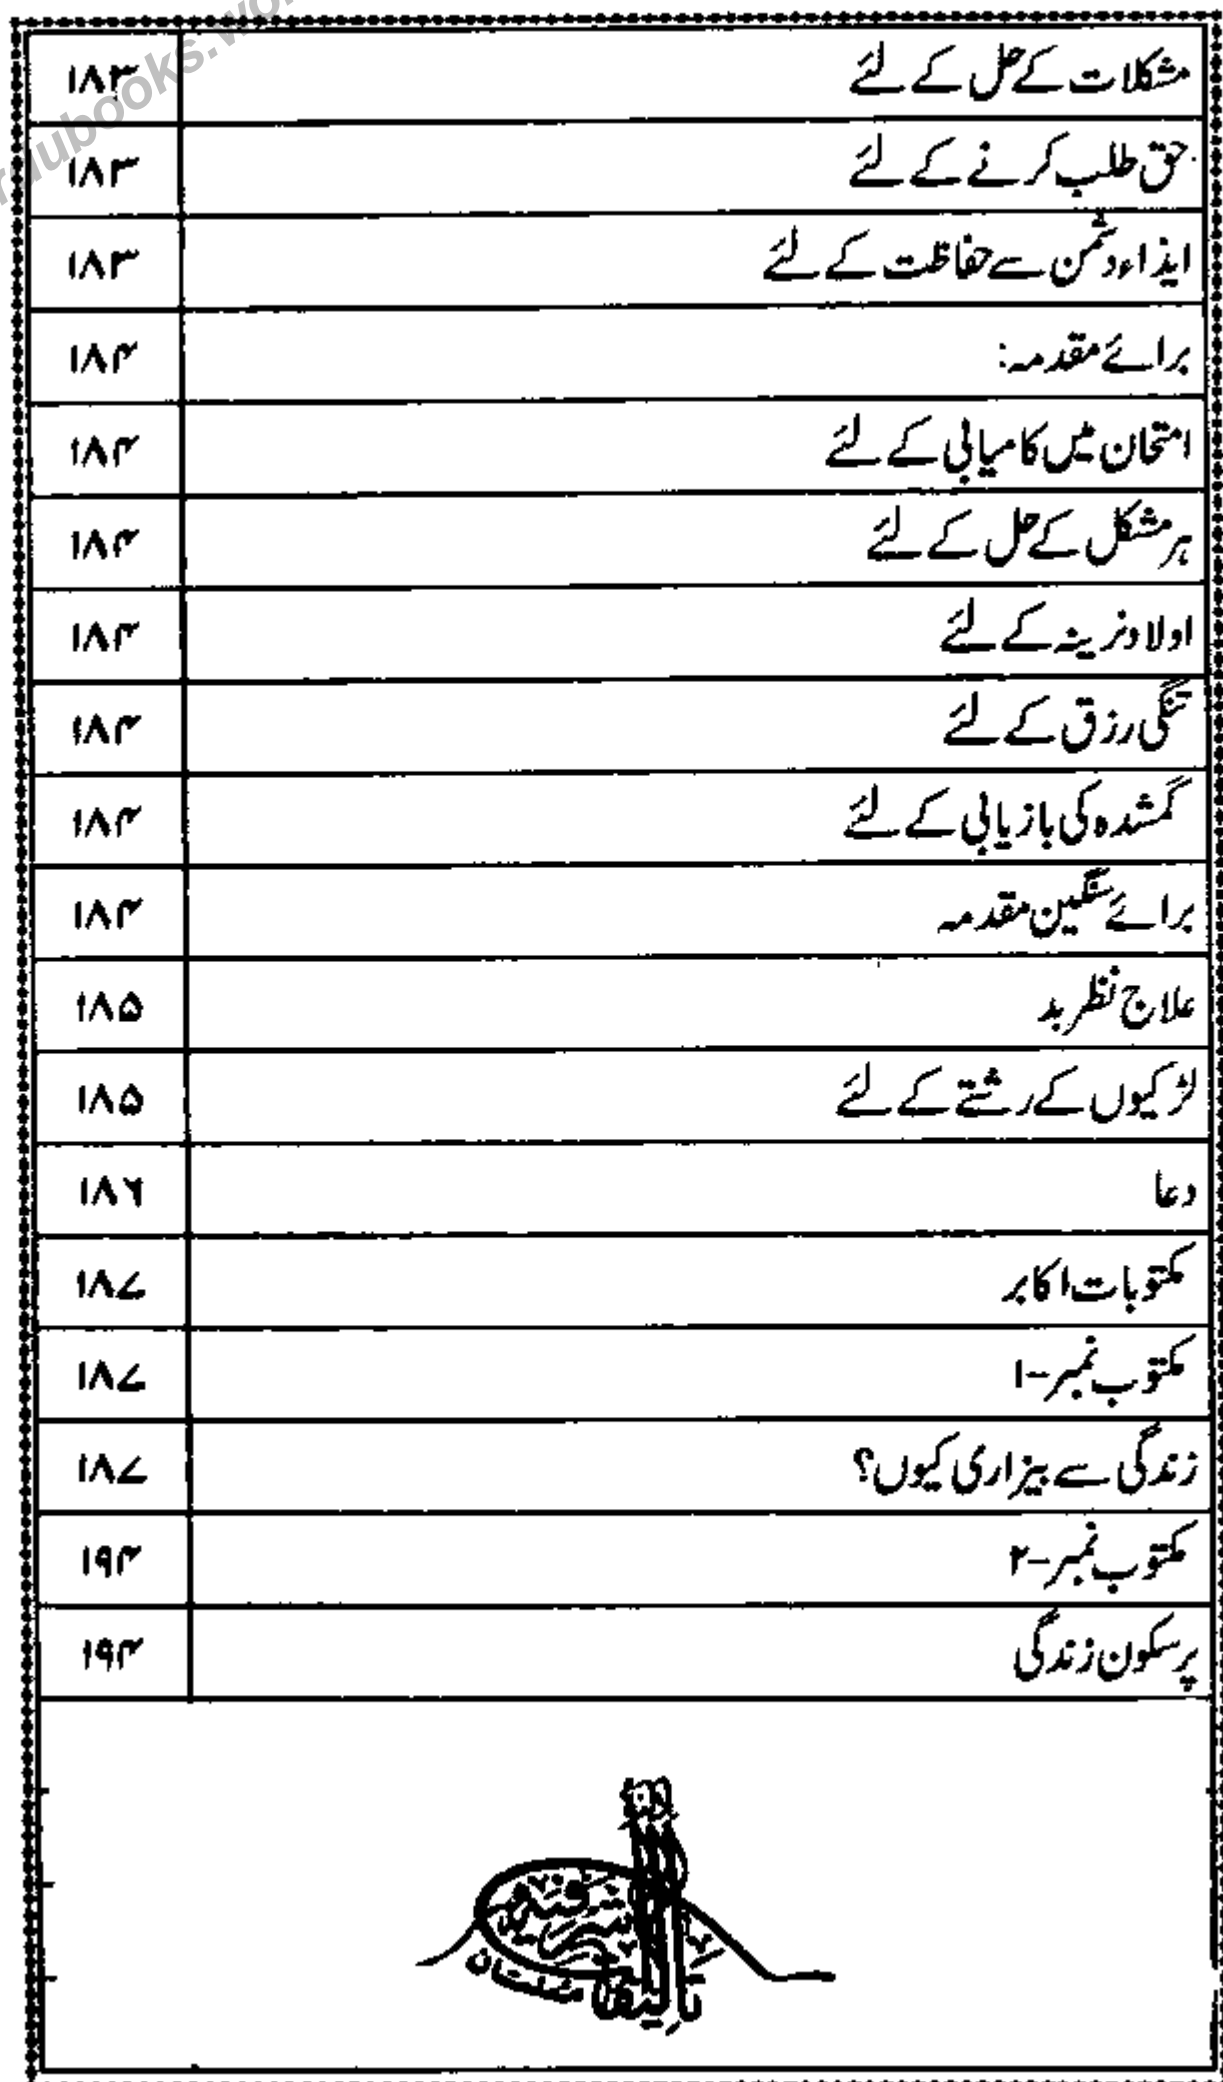 مشکلات کے حل کے لئے ۱۸۳
حق طلب کرنے کے لئے ۱۸۳
ایذاء دشمن سے حفاظت کے لئے ۱۸۳
برائے مقدمہ: ۱۸۴
امتحان میں کامیابی کے لئے ۱۸۴
ہر مشکل کے حل کے لئے ۱۸۴
اولاد نرینہ کے لئے ۱۸۴
تنگی رزق کے لئے ۱۸۴
گمشدہ کی بازیابی کے لئے ۱۸۴
برائے سنگین مقدمہ ۱۸۴
علاج نظر بد ۱۸۵
لڑکیوں کے رشتے کے لئے ۱۸۵
دعا ۱۸۶
مکتوبات اکابر ۱۸۷
مکتوب نمبر-۱ ۱۸۷
زندگی سے بیزاری کیوں؟ ۱۸۷
مکتوب نمبر-۲ ۱۹۴
پرسکون زندگی ۱۹۴